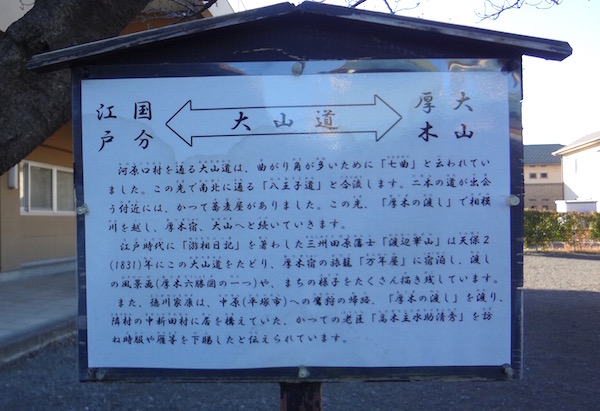 国分
江戸
大山道
大山
厚木
河原口村を通る大山道は、曲がり角が多いために「七曲」と云われてい
ました。この先で南北に通る「八王子道」と合流します。二本の道が出会
う付近には、かつて蕎麦屋がありました。この先、「厚木の渡し」で相模
川を越し、厚木宿、大山へと続いていきます。
江戸時代に「游相日記」を著わした三州田原藩士「渡辺崋山」は天保2
(1831)年にこの大山道をたどり、厚木宿の旅籠「万年屋」に宿泊し、渡し
の風景画(厚木六勝図の一つ)や、まちの様子をたくさん描き残しています。
また、徳川家康は、中原(平塚市)への鷹狩の帰路、「厚木の渡し」を渡り、
隣村の中新田村に居を構えていた、かつての老臣「高木主水助清秀」を訪
ね時服や雁等を下賜したと伝えられています。